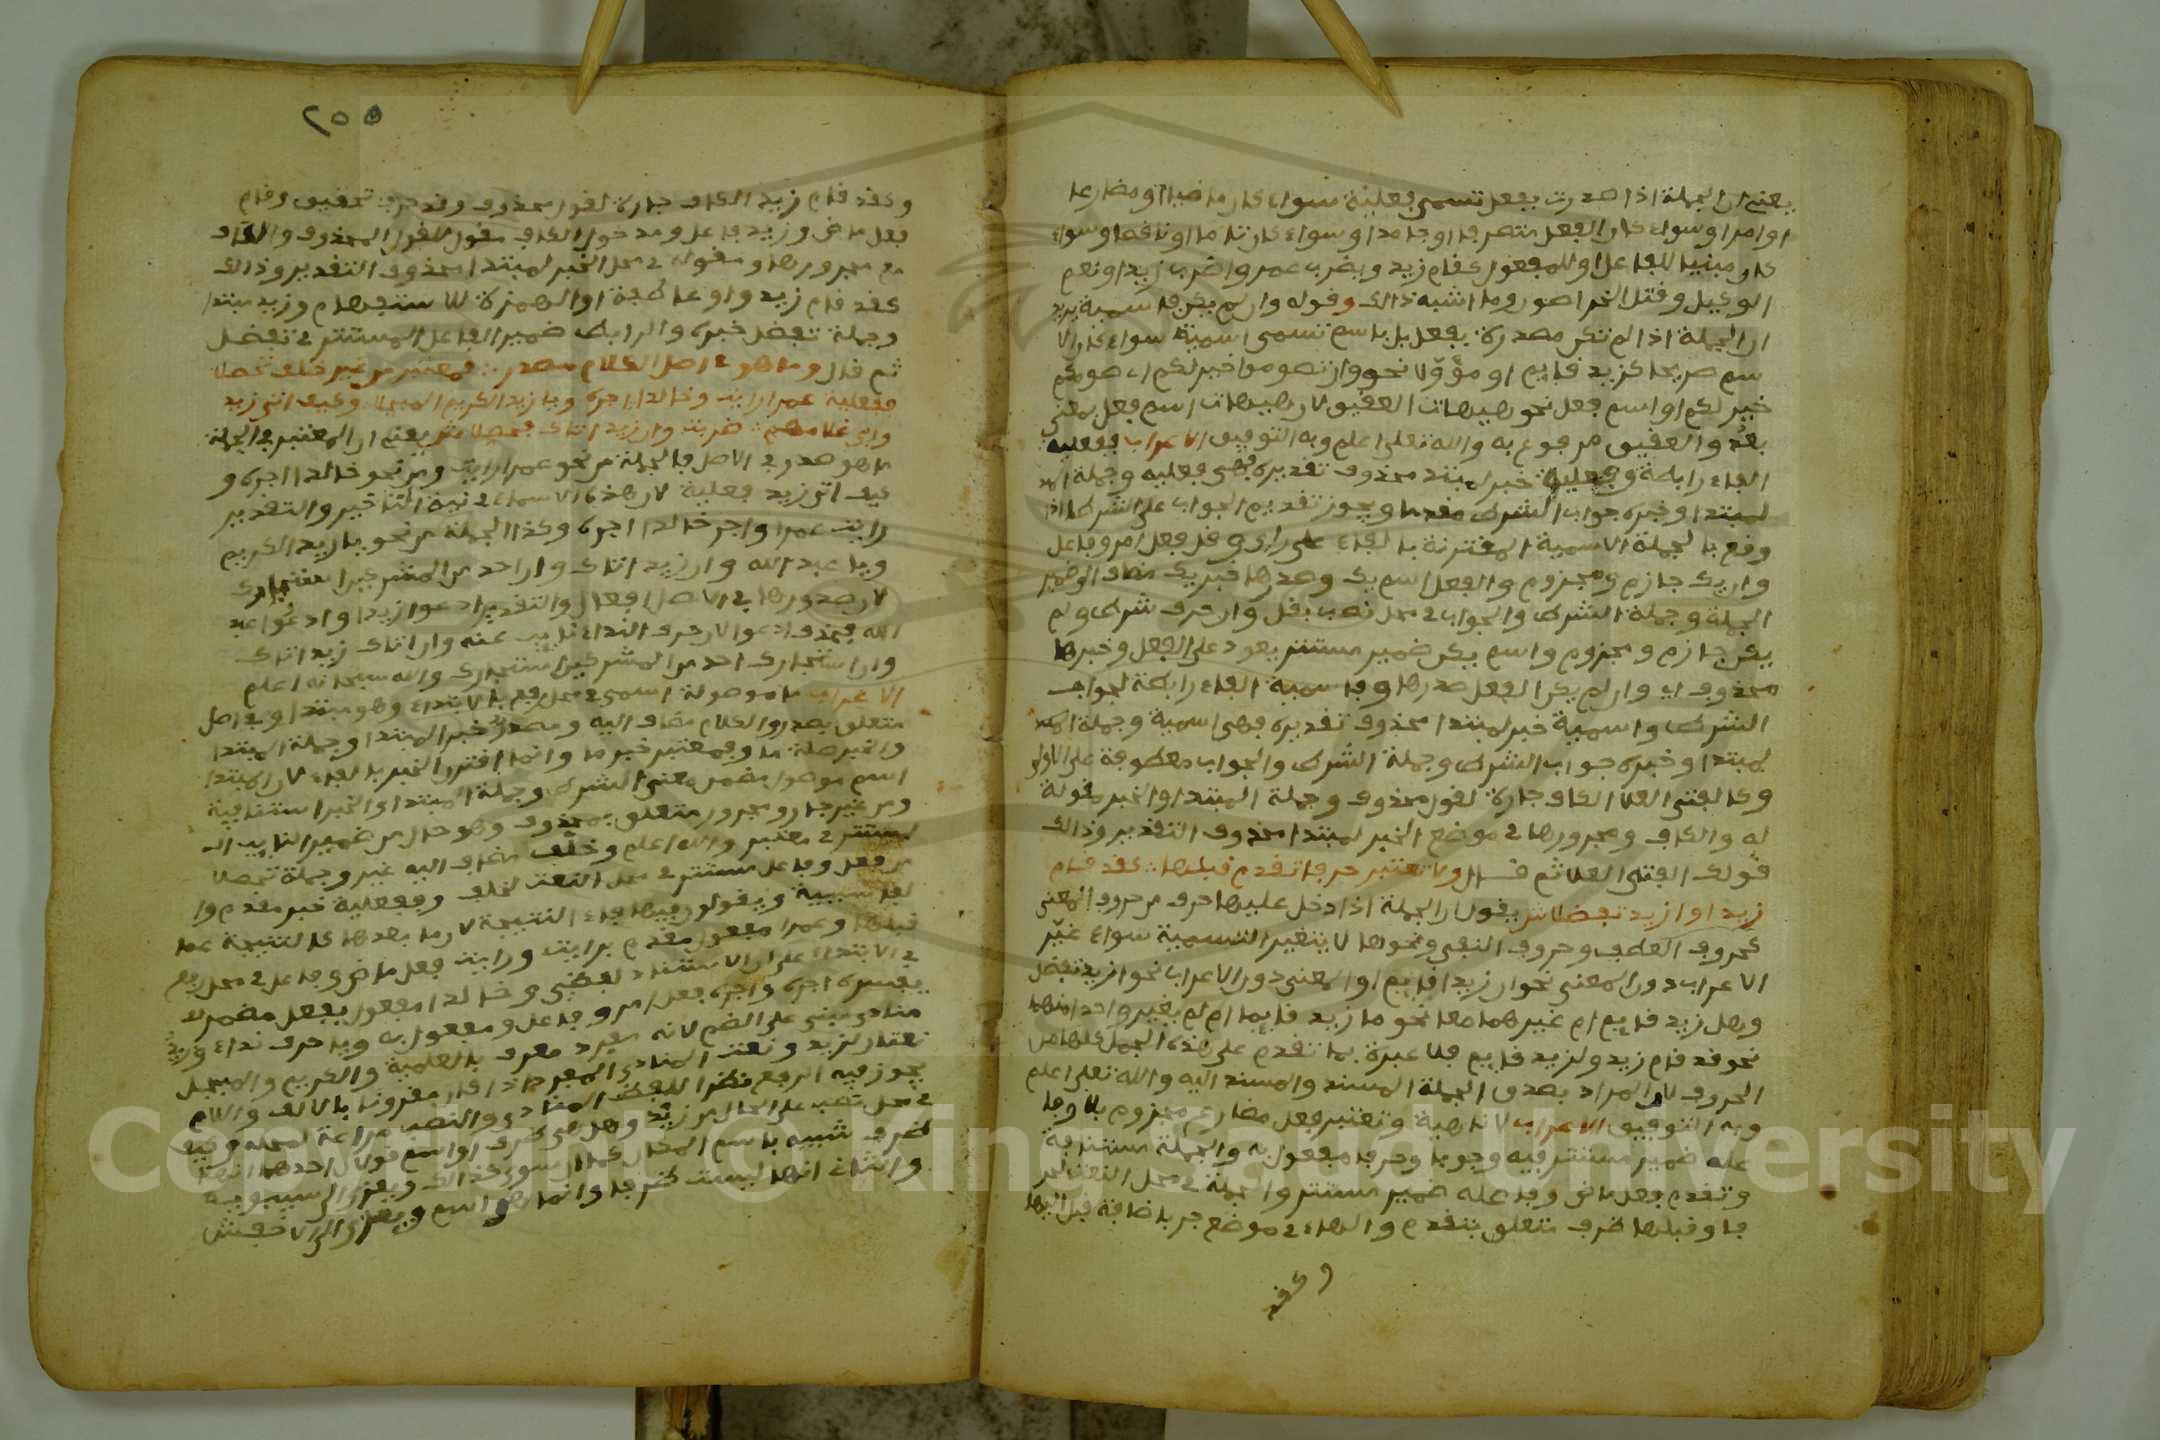 يعني ان الجملة اذا صدرت بفعل تسمى فعلية سواء كان ماضيا او مضارعا
او امرا وسواء كان الفعل متصرفا او جامدا وسواء كان تاما او ناقصا وسواء
كان مبنيا للفاعل او للمفعول كقام زيد ويضرب عمر واضرب زيدا ونعم
الوكيل وقتل الخراصون وما اشبه ذالك وقوله وان لم يكن فاسمية يريد
ان الجملة اذا لم تكن مصدرة بفعل بل باسم تسمى اسمية سواء كان الا
سم صريحا كزيد قايم او مؤولا نحو وان تصوموا خير لكم اي صومكم
خير لكم او اسم فعل نحو هيهات العقيق لان هيهات اسم فعل بمعنى
بعد والعقيق مرفوع به والله تعلى اعلم وبه التوفيق الاعراب ففعليه
الفاء رابطة وفعلية خبر لمبتدا محذوف تقديره فهي فعليه وجملة
المبتدا وخبره جواب الشرط مقدما ويجوز تقديم الجواب على الشرط اذا
وقع بالجملة الاسمية المقترنة بالفاء على راي وقل فعل امر وفاعل
وان يك جازم ومجزوم والفعل اسم يك وصدرها خبر يك مضاف الى ضمير
الجملة وجملة الشرط والجواب في محل نصب بقل وان حرف شرط ولم
يكن جازم ومجزوم واسم يكن ضمير مستتر يعود على الفعل وخبرها
محذوف اي وان لم يكن الفعل صدرها وفاسمية الفاء رابطة لجواب
الشرط واسمية خبر لمبتدا محذوف تقديره فهي اسمية وجملة
المبتدا وخبره جواب الشرط وجملة الشرط والجواب معطوفة على الاولى
وكالفتى العلا الكاف جارة لقول محذوف وجملة المبتدا والخبر مقولة
له والكاف ومجرورها في موضع الخبر لمبتدا محذوف التقدير وذالك
قولك الفتى العلا ثم قال ولا تعتبر حرفا تقدم قبلها كقد قام
زيد او ازيد تفضلا ش يقول ان الجملة اذا دخل عليها حرف من حروف المعنى
كحروف العطف وحروف النفي ونحوها لا يتغير التسمية سواء غير
الاعراب دون المعنى نحو ان زيدا قايم او المعنى دون الاعراب نحو ازيد تفضل
وهل زيد قايم ام غيرهما معا نحو ما زيد قايما ام لم يغير واحدا منهما
نحو قد قام زيد ولزيد قايم فلا عبرة بما تقدم على هذه الجمل كلها من
الحروف لان المراد بصدق الجملة المسند والمسند اليه والله تعلى اعلم
وبه التوفيق الاعراب لا ناهية وتعتبر فعل مضارع مجزوم بلا وفا
عله ضمير مستتر فيه وجوبا وحرفا مفعول به والجملة مستانفة
وتقدم فعل ماض وفاعله ضمير مستتر والجملة في محل النعت لحر
فا وقبلها ظرف متعلق بتقدم والهاء في موضع جر باضافة قبل اليها
وكقد
٢٥٥
وكقد قام زيد الكاف جارة لقول محذوف وقد حرف تحقيق وقام
فعل ماض وزيد فاعل ومدخول الكاف مقول للقول المحذوف والكاف
مع مجرورها ومقوله في محل الخبر لمبتدا محذوف التقدير وذالك
كقد قام زيد واو عاطفة او الهمزة للاستفهام وزيد مبتدا
وجملة تفضل خبره والرابط ضمير الفاعل المستتر في تفضل
ثم قال وما هو في اصل الكلام مصدر فمعتبر من غير خلف تحصلا
ففعلية عمرا رايت وخالدا اجره ويا زيد الكريم المبجلا وكيف اتى زيد
ش يعني ان المعتبر في الجملة
ما هو صدر في الاصل فالجملة من نحو عمرا رايت ومن نحو خالدا اجره و
كيف اتى زيد فعلية لان هذه الاسماء في نية التاخير والتقدير
رايت عمرا واجر خالدا اجره وكذا الجملة من نحو يا زيد الكريم
ويا عبد الله وان زيد اتاك وان احد من المشركين استجارك
لان صدورها في الاصل افعال والتقدير ادعوا زيدا وادعوا عبد
الله فحذف ادعوا لان حرف النداء نايب عنه وان اتاك زيد اتاك
وان استجارك احد من المشركين استجارك والله سبحانه اعلم
الاعراب ما موصولة اسمي في محل رفع بالابتداء وهو مبتدا وفي اصل
متعلق بصدر والكلام مضاف اليه ومصدر خبر المبتدا وجملة المبتدا
والخبر صلة ما وفمعتبر خبر ما وانما اقترن الخبر بالفاء لان المبتدا
اسم موصول مضمن معنى الشرط وجملة المبتدا والخبر استئنافية
ومن غير جار ومجرور متعلق بمحذوف وهو حال من ضمير النايب
المستتر في معتبر والله اعلم وخلف مضاف اليه غير وجملة تحصلا
من فعل وفاعل مستتر في محل النعت لخلف وففعلية خبر مقدم وا
لفا سببية ويقولون فيها فاء النتيجة لان ما بعدها كالنتيجة عما
قبلها وعمرا مفعول مقدم برايت ورايت فعل ماض وفاعل في محل رفع
في الابتداء على ان الاسناد لفظي وخالدا مفعول بفعل مضمر
يفسره اجره واجره فعل امر وفاعل ومفعول به ويا حرف نداء وزيد
منادى مبني على الضم لانه مفرد معرف بالعلمية والكريم والمبجل
نعتان لزيد ونعت المنادى المفرد اذا كان مقرونا بالالف واللام
يجوز فيه الرفع نظرا للفظ المنادى والنصب مراعة لمحله وكيف
في محل نصب على الحال من زيد وهل هي ظرف او اسم قولان احدهما انها
ظرف شبيه باسم المكان ويعزى الى سيبويه
والثاني انها ليست ظرفا وانما هو اسم ويعزى الى الاخفش
Copyright © King Saud University